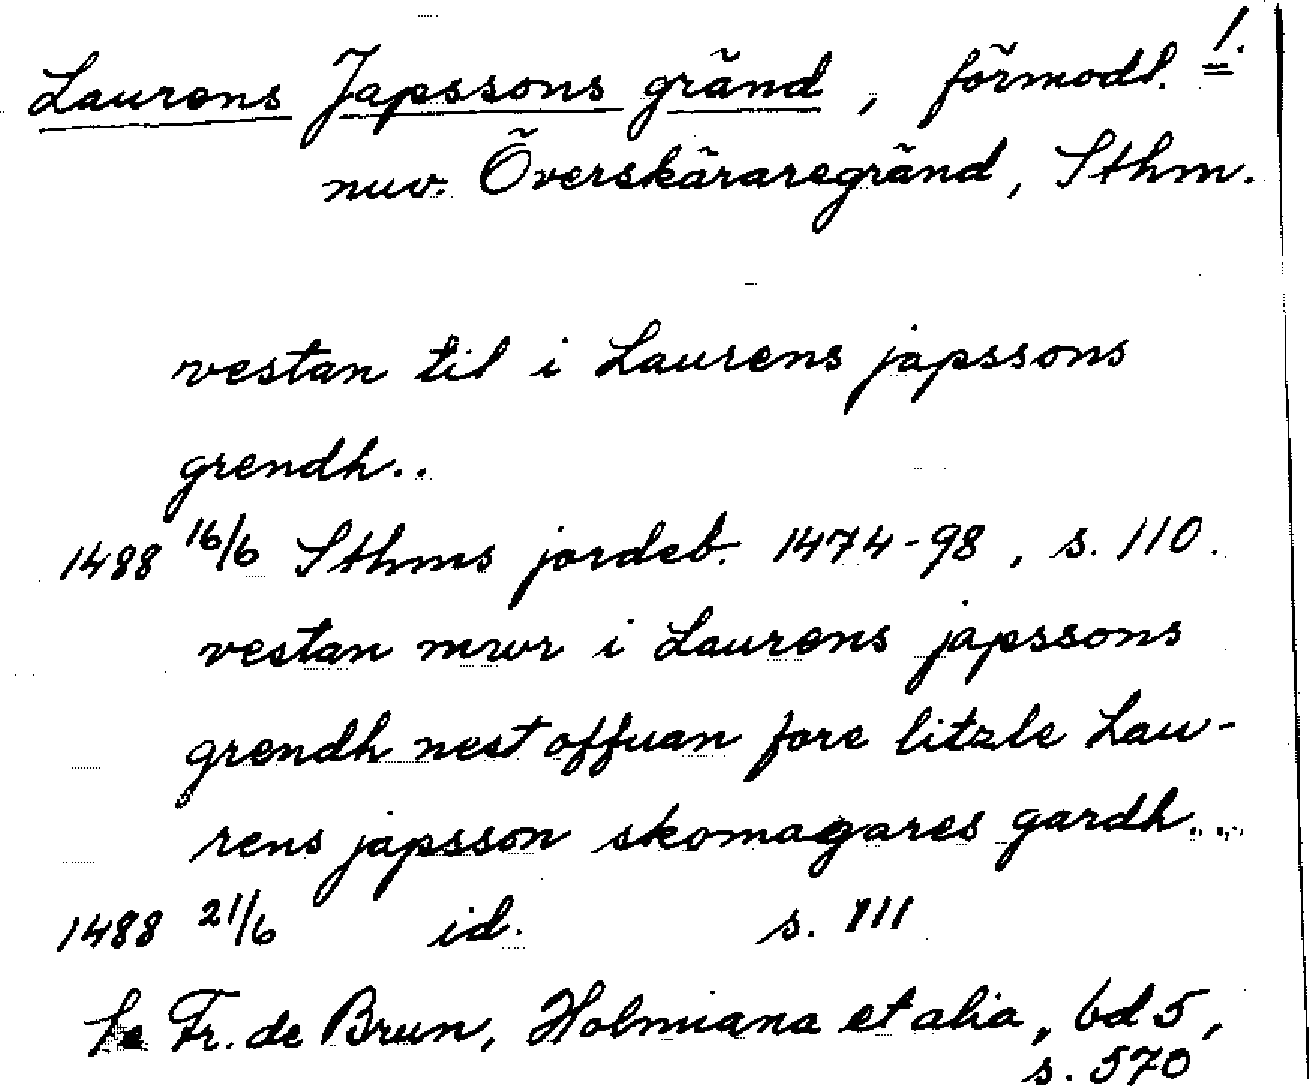 Laurens Japssons gränd, förmodl. 1.
nuv. Överskäraregränd, Sthm.
vestan til i Laurens japssons
grendh..
1488 16/6 Sthms jordeb. 1474-98, s. 110.
vestan mwr i Laurens japssons
grendh nest offuan fore litzle Lau-
rens japsson skomagares gardh...
1488 21/6 id. s. 111
Se Fr. de Brun, Holmiana et alia, bd 5,
s. 570